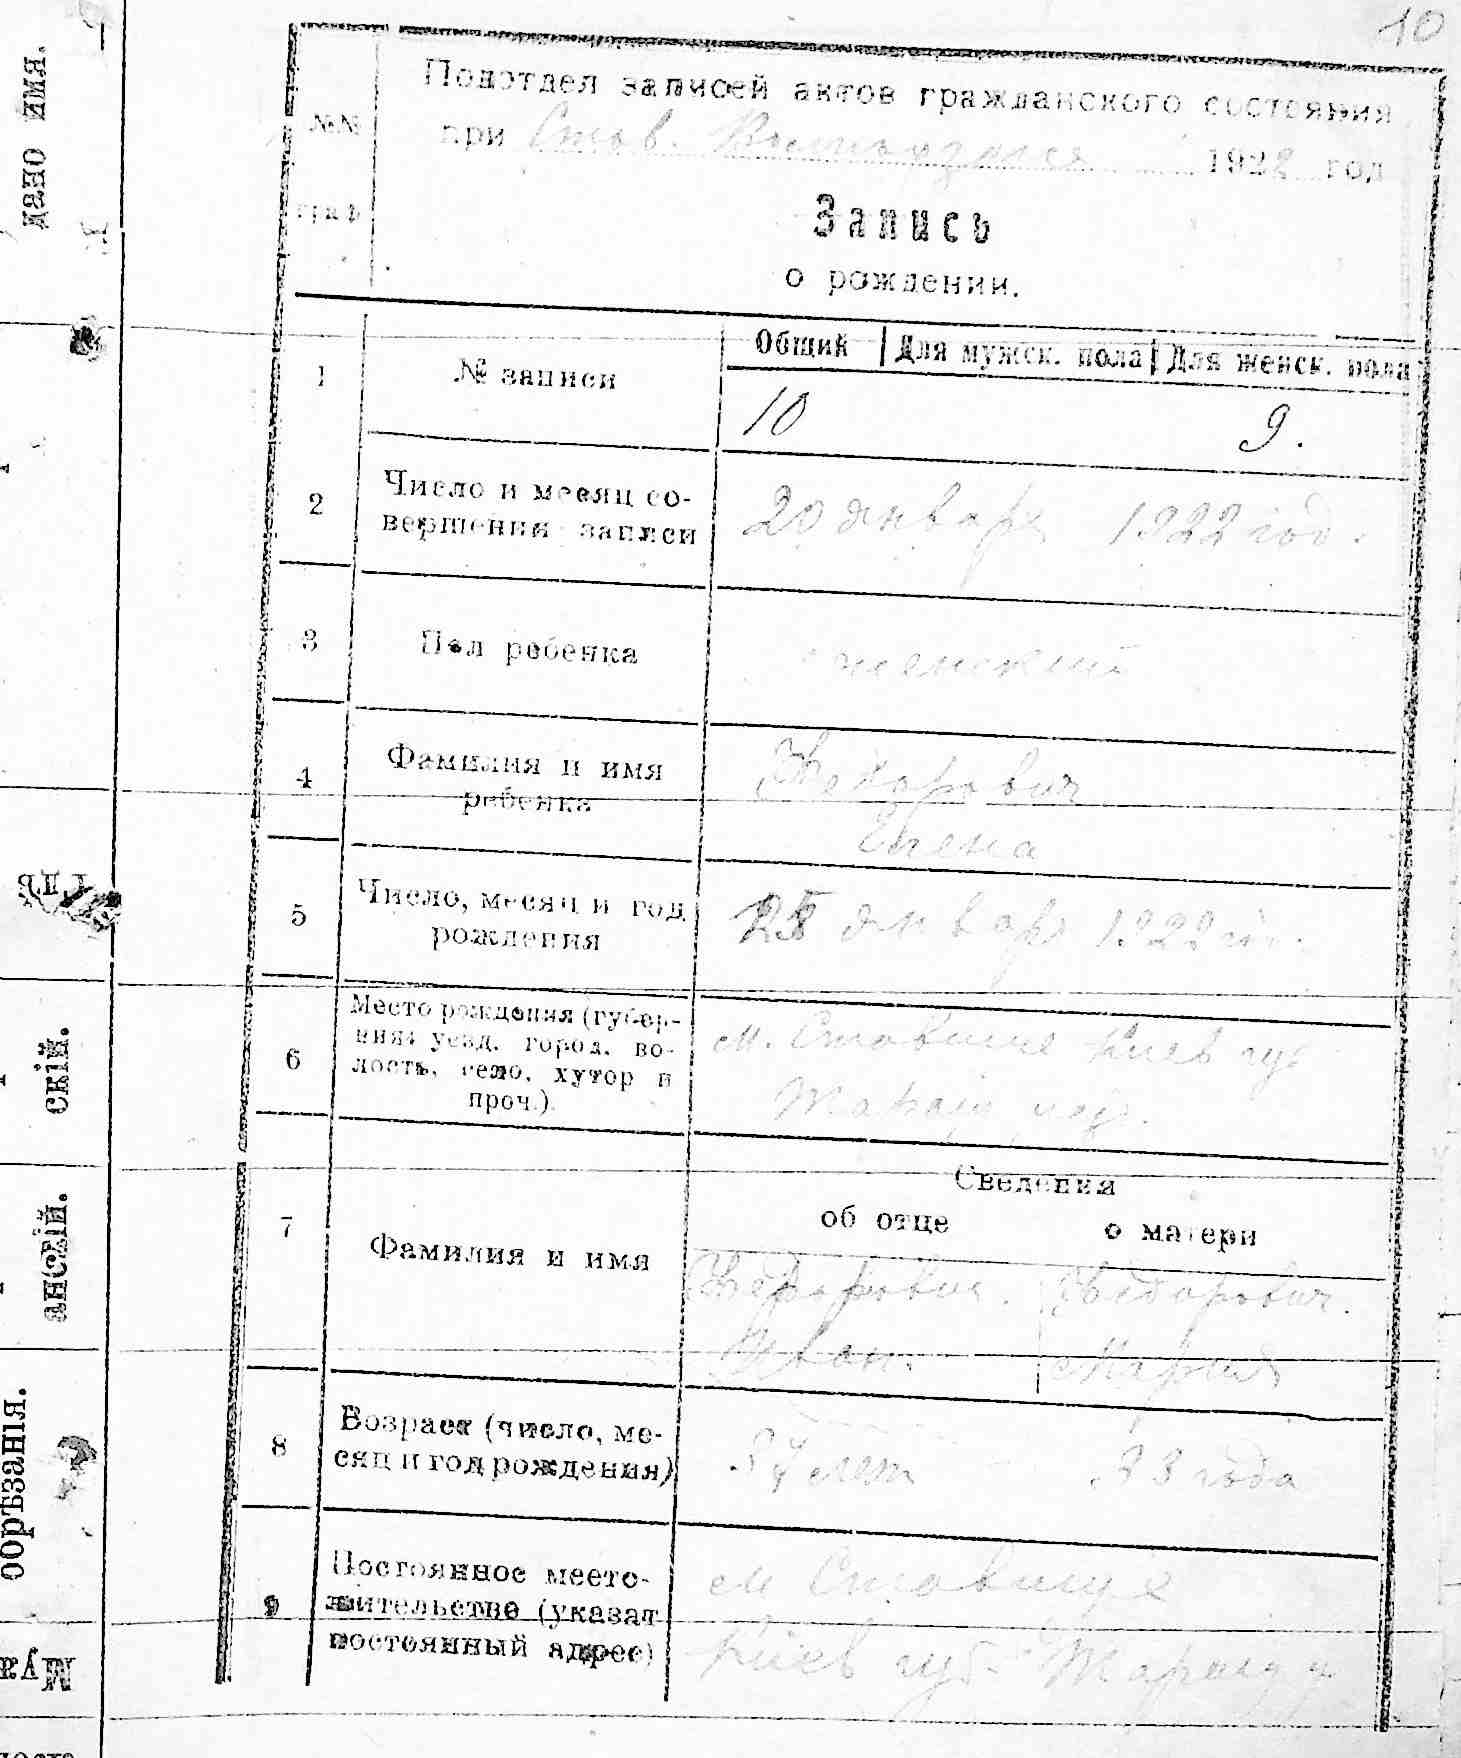 10
дано имя.
Подотдел записей актов гражданского состояния
№№ граф
при Став. 1922 год
Запись
о рождении.
Общий | Для мужск. пола | Для женск. пола
1 № записи 10 9.
2 Число и месяц со-
вершения записи 20 января 1922 год.
3 Пол ребенка женский
4 Фамилия и имя Федорович
ребенка Елена
5 Число, месяц и год
рождения январ 1922
6 Место рождения (губер-
ния, уезд, город, во-
лость, село, хутор и
проч.).
м. Ставище Киев губ
Тсведения
об отце о матери
7 Фамилия и имя
Федорович. Федорович.
Иван. Мария
8 Возраст (число, ме-
сяц и год рождения) 37 лет 33 года
9 Постоянное место-
жительство (указат
постоянный адрес)
м Ставище
Киев губ Таращ у
скій.
анскій.
обрѣзанія.